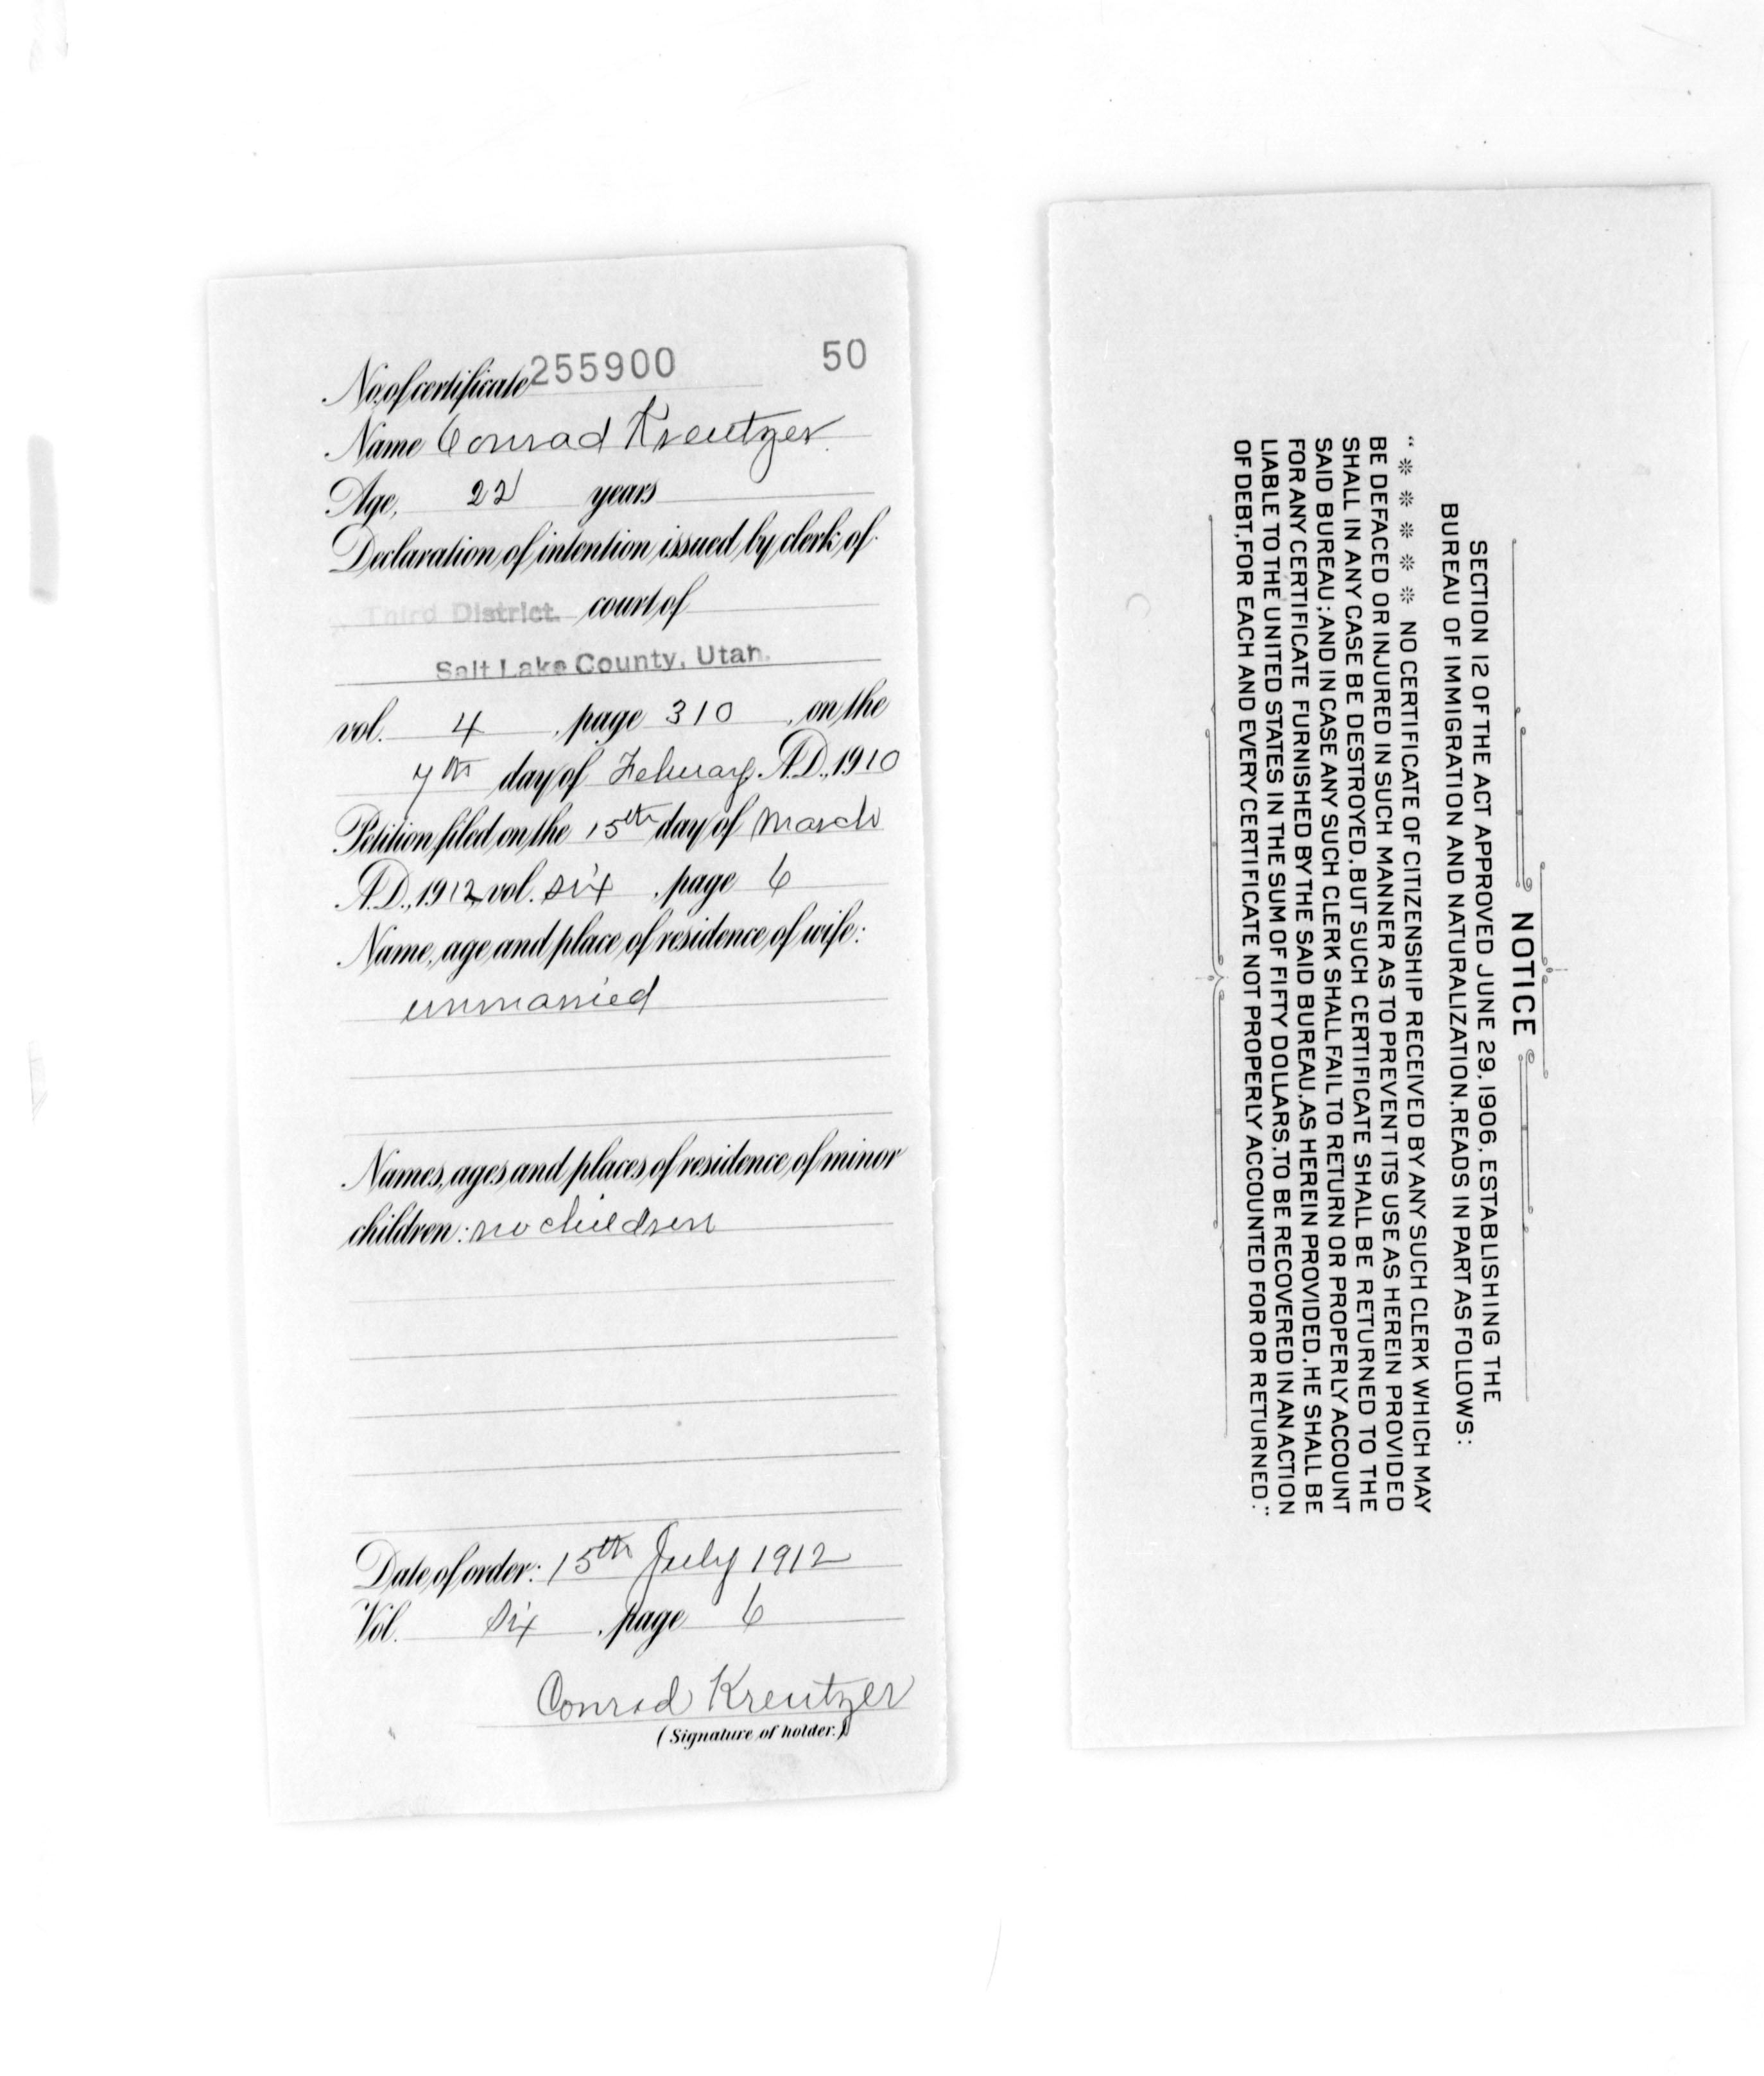 No. of certificate 255900 50
Name Conrad Kreutzer
Age, 22 years
Declaration of intention issued by clerk of
Third District. court of
Salt Lake County, Utah.
vol. 4, page 310, on the
7th day of February, A.D., 1910
Petition filed on the 15th day of March
A.D., 1912, vol. six, page 6
Name, age and place of residence of wife:
unmarried
Names, ages and places of residence of minor
children: no children
Date of order: 15th July 1912
Vol. six, page 6
Conrad Kreutzer
(Signature of holder.)
NOTICE
SECTION 12 OF THE ACT APPROVED JUNE 29, 1906, ESTABLISHING THE
BUREAU OF IMMIGRATION AND NATURALIZATION, READS IN PART AS FOLLOWS:
"* * * * * NO CERTIFICATE OF CITIZENSHIP RECEIVED BY ANY SUCH CLERK WHICH MAY
BE DEFACED OR INJURED IN SUCH MANNER AS TO PREVENT ITS USE AS HEREIN PROVIDED
SHALL IN ANY CASE BE DESTROYED, BUT SUCH CERTIFICATE SHALL BE RETURNED TO THE
SAID BUREAU; AND IN CASE ANY SUCH CLERK SHALL FAIL TO RETURN OR PROPERLY ACCOUNT
FOR ANY CERTIFICATE FURNISHED BY THE SAID BUREAU, AS HEREIN PROVIDED, HE SHALL BE
LIABLE TO THE UNITED STATES IN THE SUM OF FIFTY DOLLARS, TO BE RECOVERED IN AN ACTION
OF DEBT, FOR EACH AND EVERY CERTIFICATE NOT PROPERLY ACCOUNTED FOR OR RETURNED."